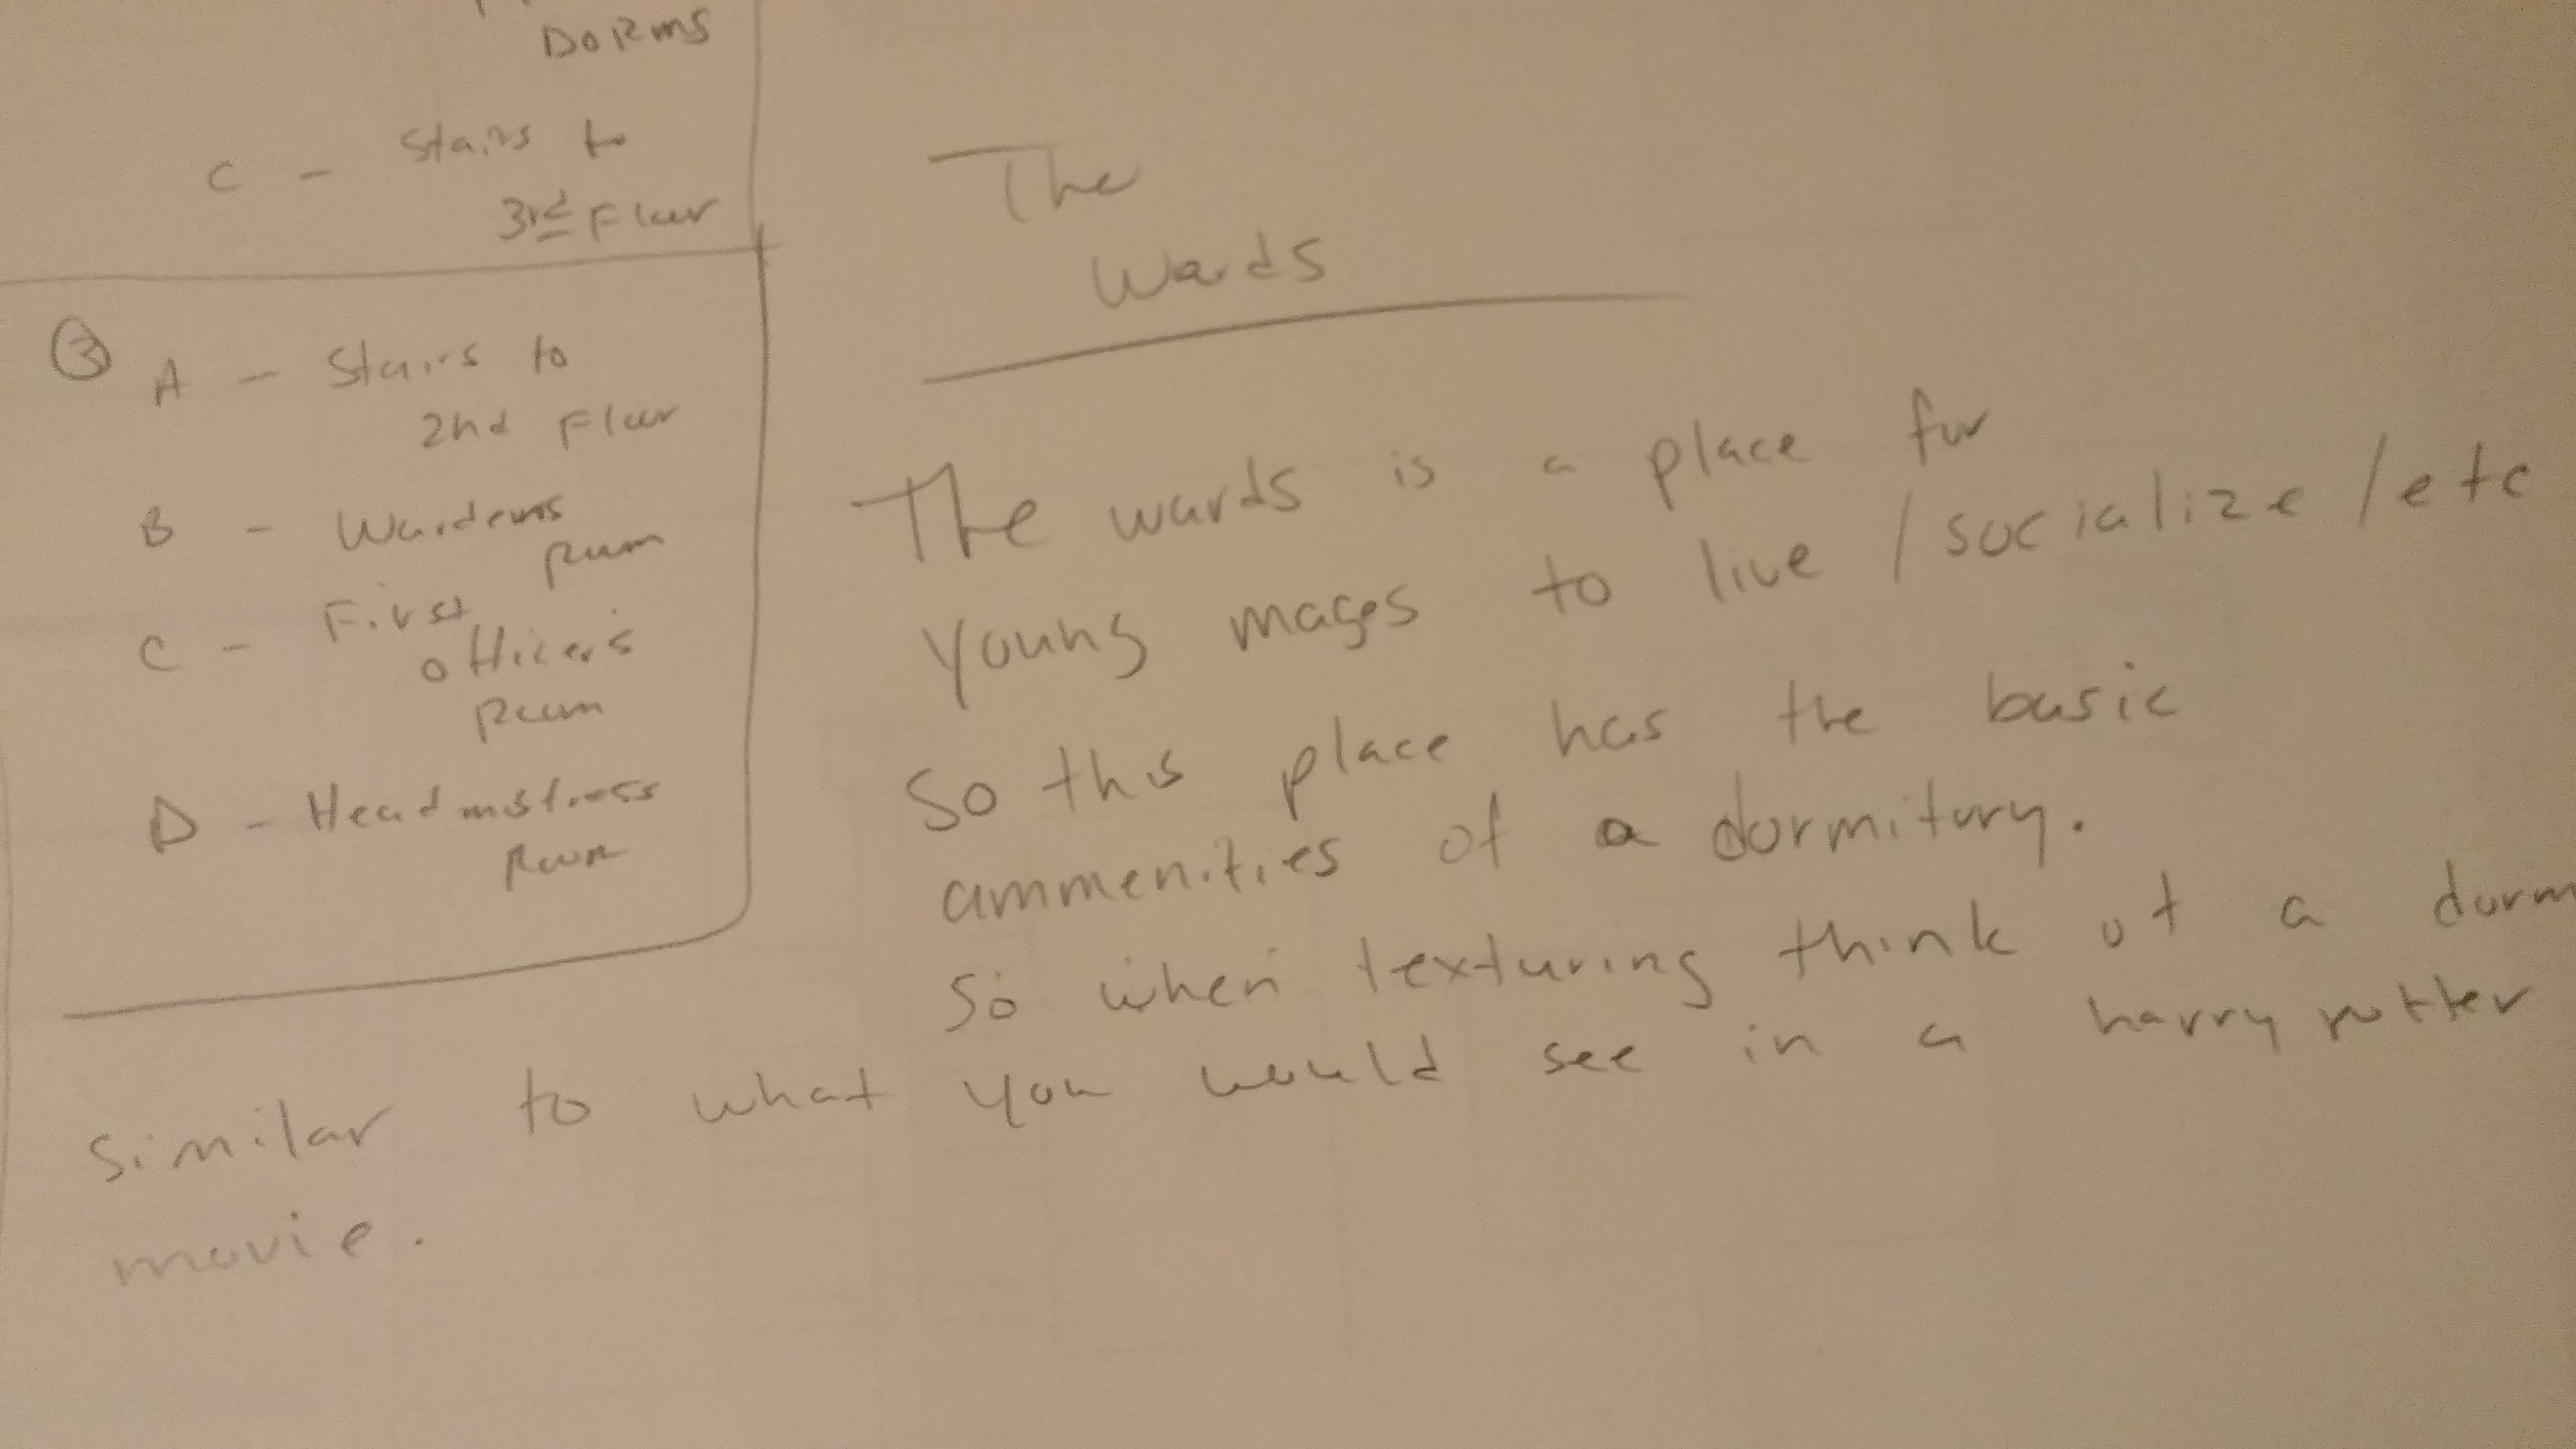 DORMS
C - Stairs to
3rd Floor
③ A - Stairs to
2nd Floor
B - Wardens
Room
C - First
officer's
Room
D - Headmistress
Room
The
Wards
The wards is a place for
young mages to live / socialize / etc
So this place has the basic
ammenities of a dormitory.
So when texturing think of a dorm
similar to what you would see in a harry potter
movie.